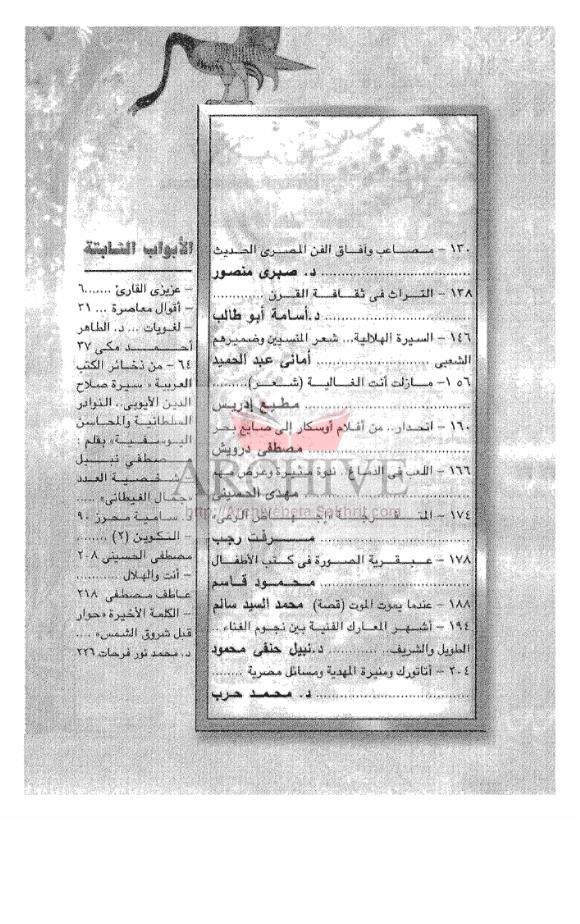 ١٣٠ - مصاعب وآفاق الفن المصرى الحديث
د. صبرى منصور
١٣٨ - التراث فى ثقافة القرن
د.أسامة أبو طالب
١٤٦ - السيرة الهلالية... شعر المنسيين وضميرهم
الشعبى ........ أمانى عبد الحميد
١٥٦- مازلت أنت الغالية (شعر)
مطيع إدريس
١٦٠ - انحدار.. من أفلام أوسكار إلى صايع بحر
مصطفى درويش
١٦٦ - اللعب فى الدماغ.. ندوة مثيرة وعرض
مهدى الحسينى
١٧٤ -
ميرفت رجب
١٧٨ - عبقرية الصورة فى كتب الأطفال
محمود قاسم
١٨٨ - عندما يموت الموت (قصة) محمد السيد سالم
١٩٤ - أشهر المعارك الفنية بين نجوم الغناء ..
الطويل والشريف.. ........ د.نبيل حنفى محمود
٢٠٤ - أتاتورك ومنيرة المهدية ومسائل مصرية
د. محمد حرب
الأبواب الثابتة
- عزيزى القارئ .......٦
- أقوال معاصرة ... ٣١
- لغويات ... د. الطاهر
أحمد مكى ٣٧
٦٤ - من ذخائر الكتب
العربية « سيرة صلاح
الدين الأيوبى.. النوادر
السلطانية والمحاسن
اليوسفية» بقلم :
مصطفى نبيل
شخصية العدد
«جمال الغيطانى» .....
د. سامية محرز ٩٠
- التكوين (٢) .......
مصطفى الحسينى ٢٠٨
- أنت والهلال
عاطف مصطفى ٢١٨
- الكلمة الأخيرة «حوار
قبل شروق الشمس» ....
د. محمد نور فرحات ٢٢٦
ARCHIVE
http://Archivebeta.Sakhrit.com